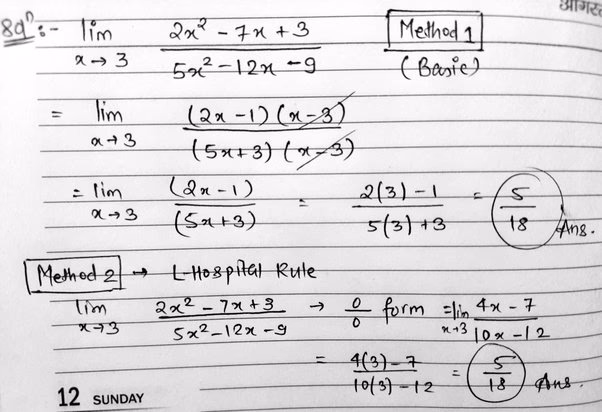 अगस्त
Solⁿ :- lim x→3 (2x² - 7x + 3)/(5x² - 12x - 9) Method 1
(Basic)
= lim x→3 (2x - 1)(x - 3)/(5x + 3)(x - 3)
= lim x→3 (2x - 1)/(5x + 3) = (2(3) - 1)/(5(3) + 3) = 5/18 Ans.
Method 2 → L-Hospital Rule
lim x→3 (2x² - 7x + 3)/(5x² - 12x - 9) → 0/0 form = lim x→3 (4x - 7)/(10x - 12)
= (4(3) - 7)/(10(3) - 12) = 5/18 Ans.
12 SUNDAY